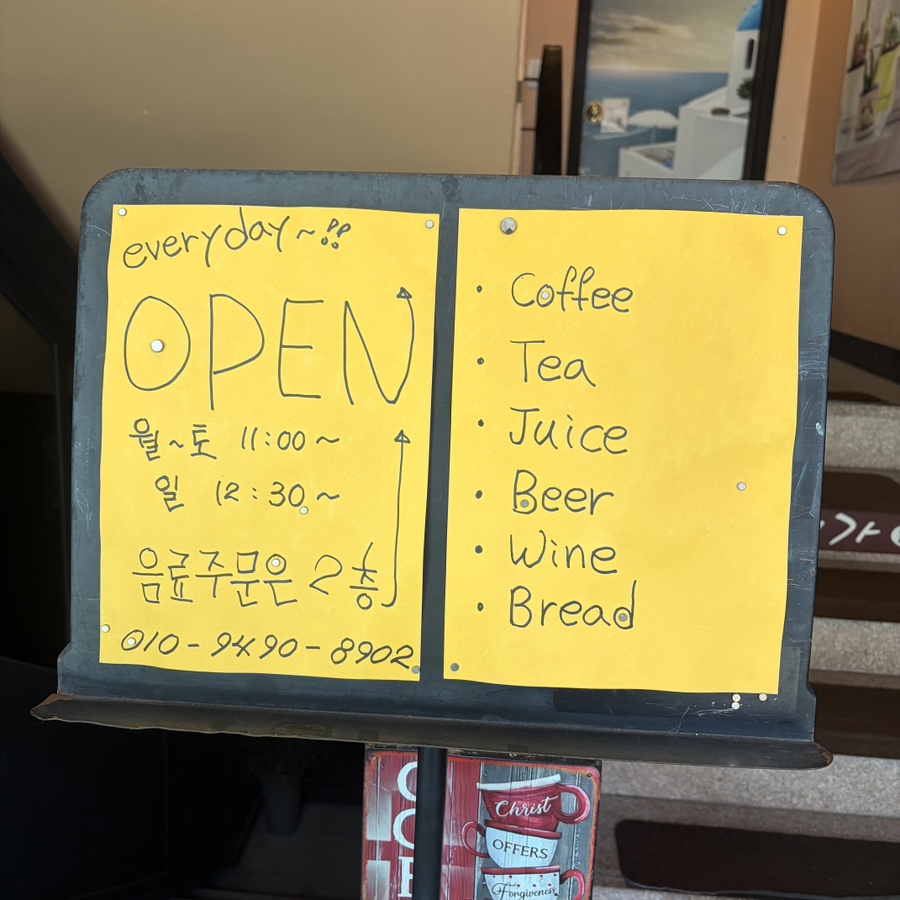 everyday ~!!
OPEN
월~토 11:00~
일 12:30~
음료주문은 2층
010-9490-8902
· Coffee
· Tea
· Juice
· Beer
· Wine
· Bread
Christ
OFFERS
Forgiveness